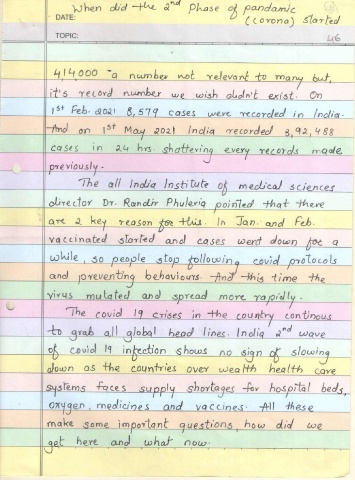 When did the 2nd Phase of pandamic
DATE: (corona) started
TOPIC: 46
414000 a number not relevant to many but,
it's record number we wish didn't exist. On
1st Feb. 2021 8,579 cases were recorded in India.
And on 1st May 2021 India recorded 3,92,488
cases in 24 hrs. shattering every records made
previously.
The all India Institute of medical sciences
director Dr. Randir Phuleria pointed that there
are 2 key reason for this. In Jan. and Feb.
vaccinated started and cases went down foe a
while, so people stop following covid protocols
and preventing behaviours. And this time the
virus mutated and spread more rapidly.
The covid 19 crises in the country continous
to grab all global head lines. India 2nd wave
of covid 19 infection shows no sign of slowing
down as the countries over wealth health care
systems faces supply shortages for hospital beds,
oxygen, medicines and vaccines. All these
make some important questions, how did we
get here and what now.